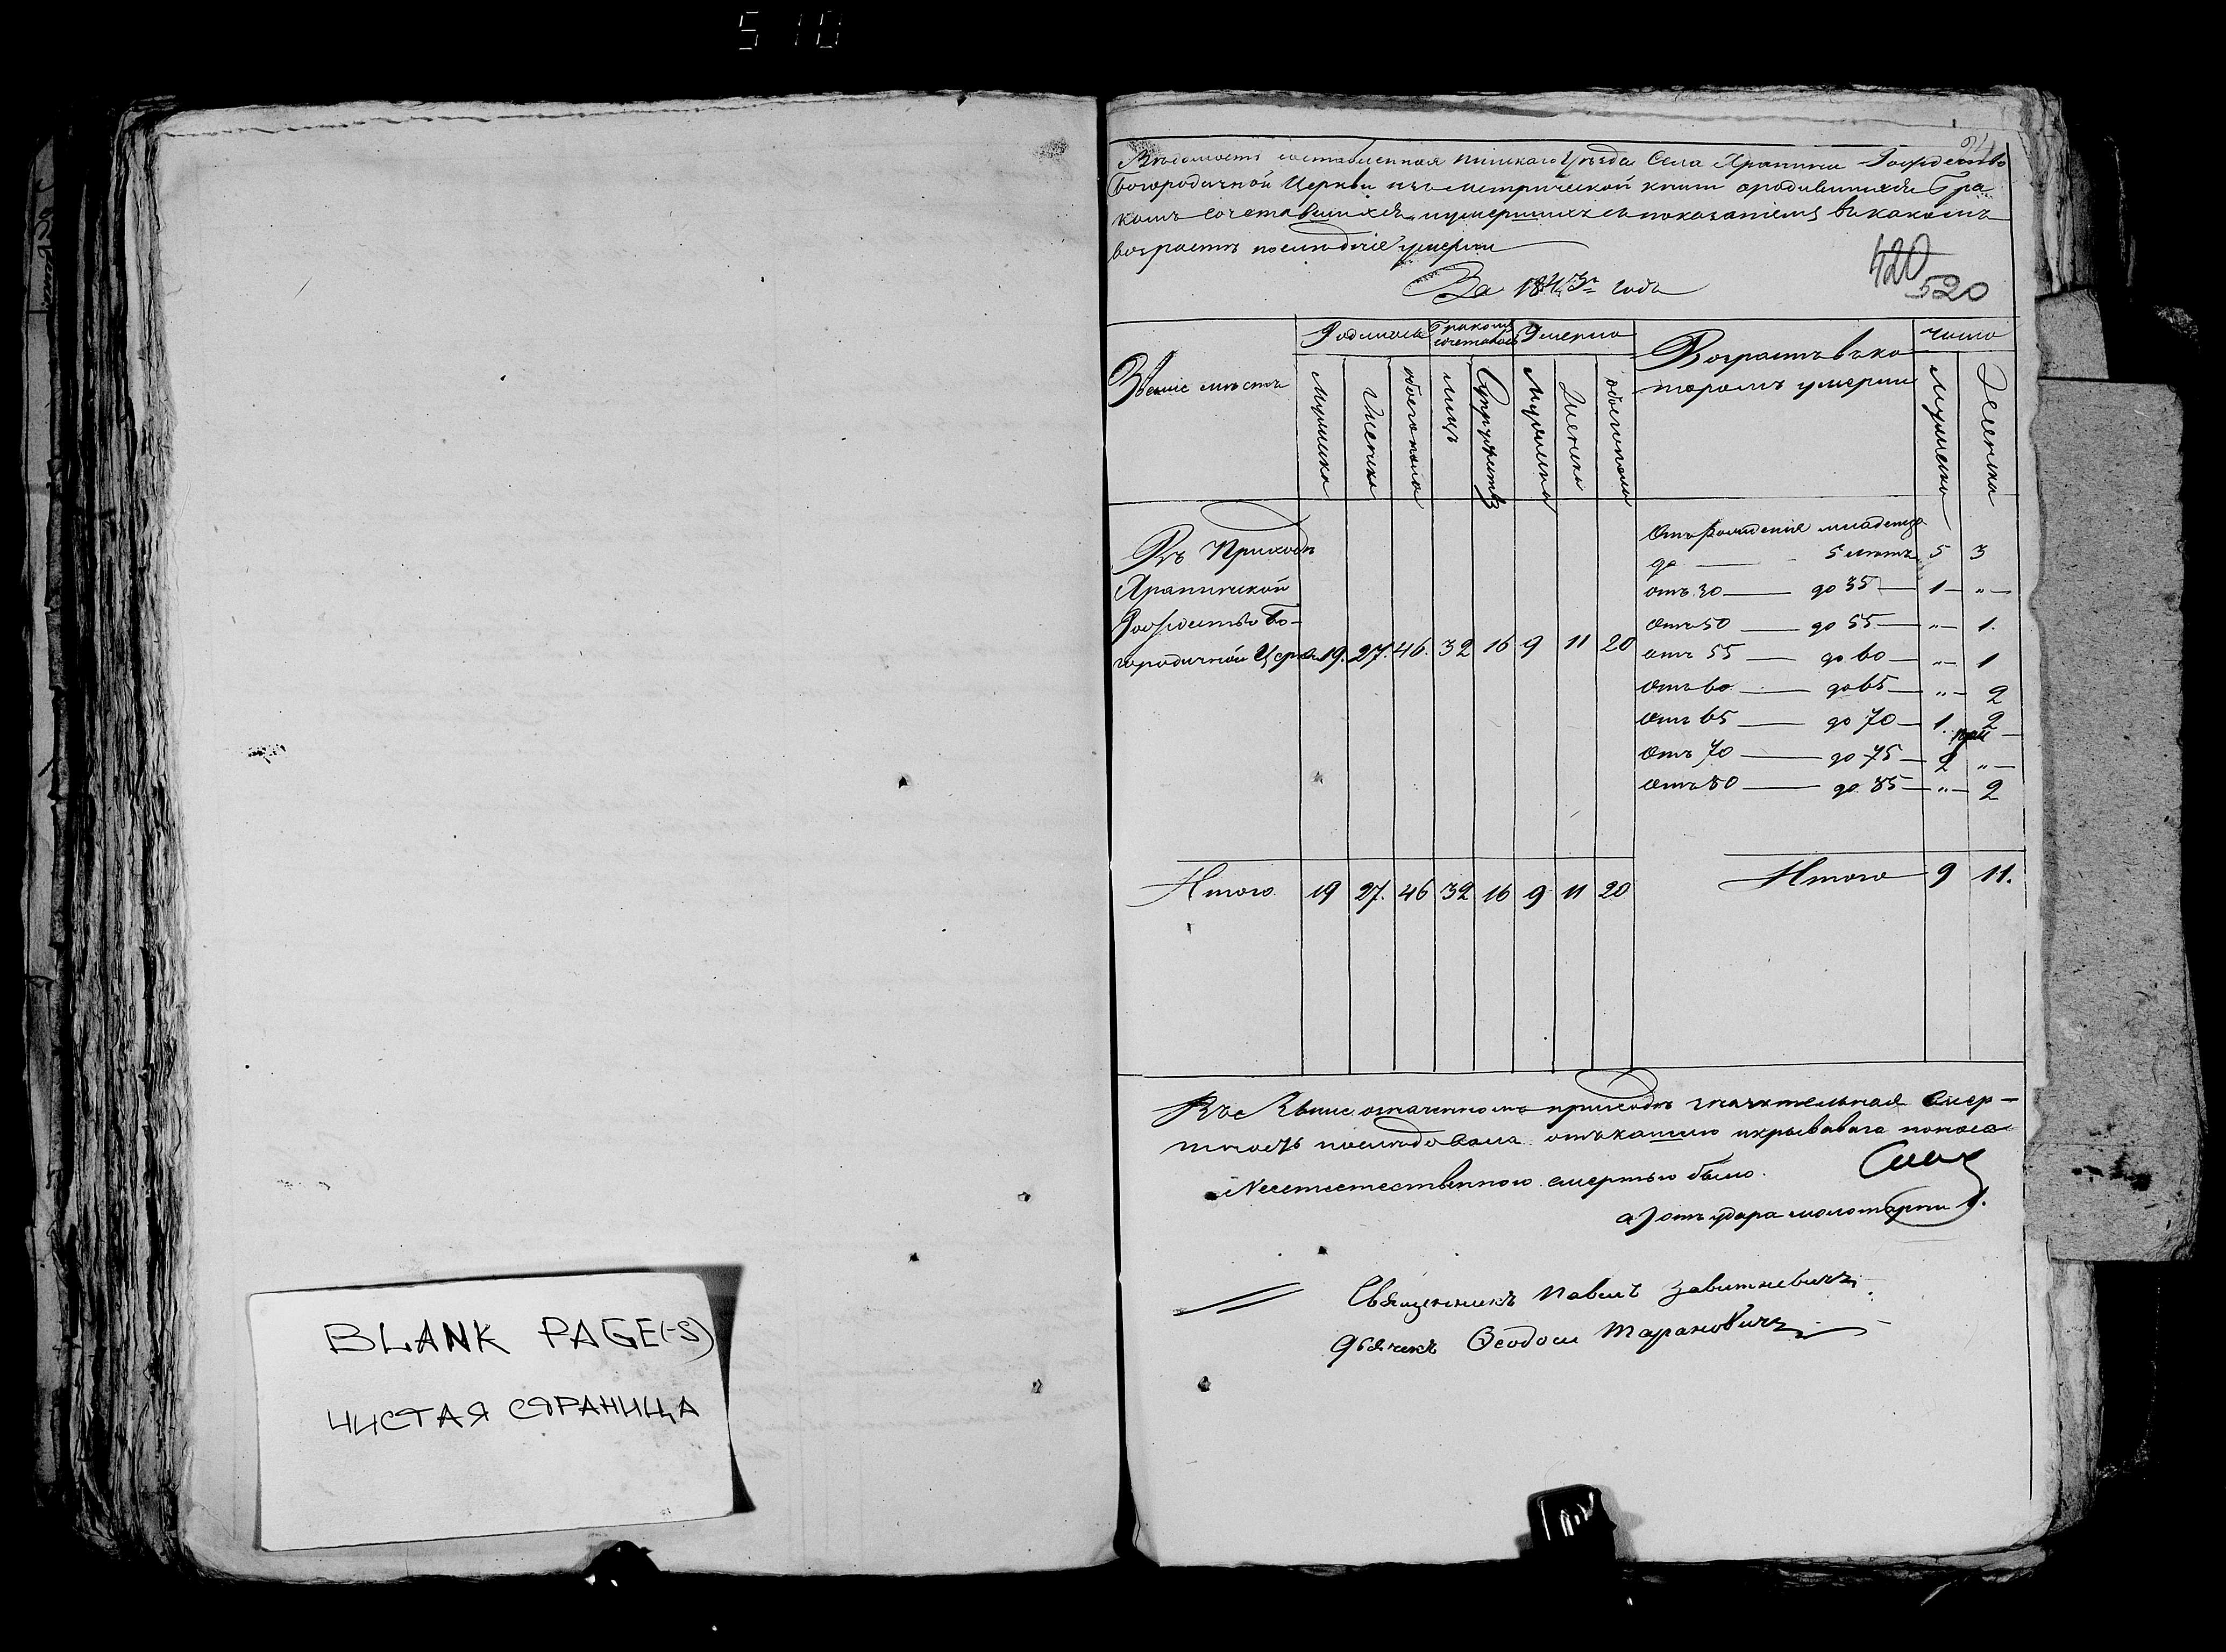 510
Вѣдомость составленная Пинскаго Уѣзда Села Храпина Рождество
Богородичной Церкви изъ метрической книги о родившихся Бра
комъ сочетавшихся и умершихъ съ показаніемъ въ какомъ
возрастѣ последніе умерли
За 1843й годъ
420
520
Званіе мѣстъ
Родилось
Бракомъ сочеталось
Умерло
Возрастъ въ ко
торомъ умерли
число
Мужеска
Женска
обоего пола
лицъ
Супружествъ
Мужеска
Женска
обоего пола
Мужеска
Женска
Въ Приходѣ
Храпинской
Рождество Бо-
городичной Церкви 19. 27. 46. 32 16 9 11 20
Отъ рожденія младенца
до — 5 лѣтъ 5 3
отъ 30 — до 35 — 1 — „ —
Отъ 50 — до 55 — „ — 1.
отъ 55 — до 60 — „ — 1
Отъ 60 — до 65 — „ — 2
Отъ 65 — до 70 — 1. 2
Отъ 70 — до 75 — 2 „ —
Отъ 80 — до 85 — „ — 2
Итого 19 27. 46 32 16 9 11 20
Итого 9 11.
Въ свыше означенномъ приходѣ значительная смер-
тность последовала отъ кашлю и крываваго поноса
Неестественною смертью было.
а) отъ удара молотарни 1.
Священникъ Павелъ Завитневичъ
Дьячекъ Ѳеодоси Тарановичъ
BLANK PAGE(-S)
ЧИСТАЯ СТРАНИЦА